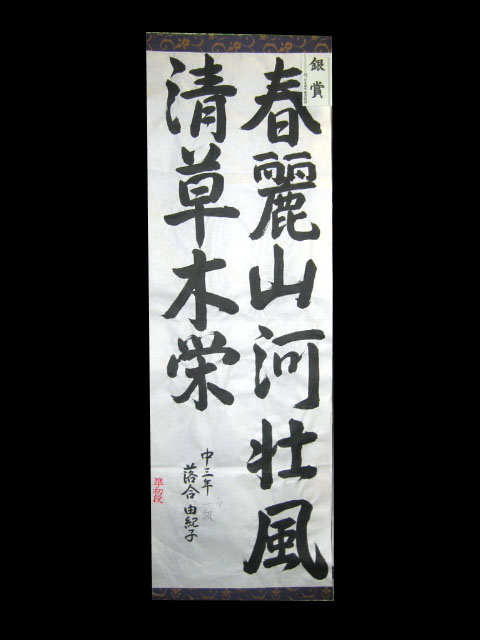 銀賞
春麗山河壮風
清草木栄
中三年
落合由紀子
準初段